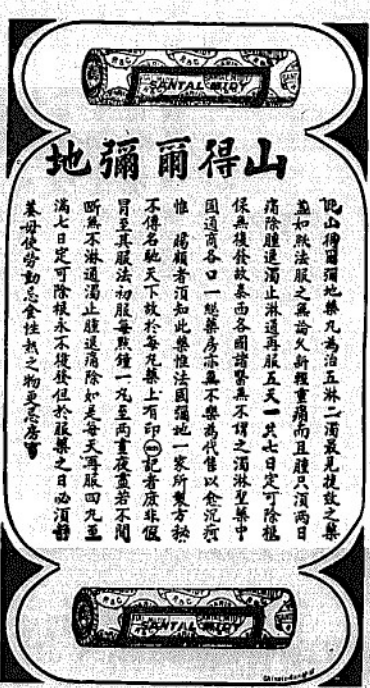 SANTAL MIDY
山得爾彌地
此山得爾彌地藥丸為治五淋二濁最見捷效之藥
盖如照法服之無論久新輕重痛而且腫只須兩日
痛除腫退濁止淋通再服五天一共七日定可除根
保無復發故泰西各國諸醫無不謂之濁淋聖藥中
國通商各口一經藥房亦無不樂為代售以愈沉疴
惟 賜顧者須知此藥惟法國彌地一家所製方秘
不傳名馳天下故於每丸藥上有印記者庶非假
冒至其服法初服每點鐘一丸至兩晝夜盡若不間
斷無不淋通濁止腫退痛除如是每天再服四丸至
滿七日定可除根永不復發但於服藥之日必須靜
養毋使勞動忌食性熱之物更忌房事
SANTAL MIDY